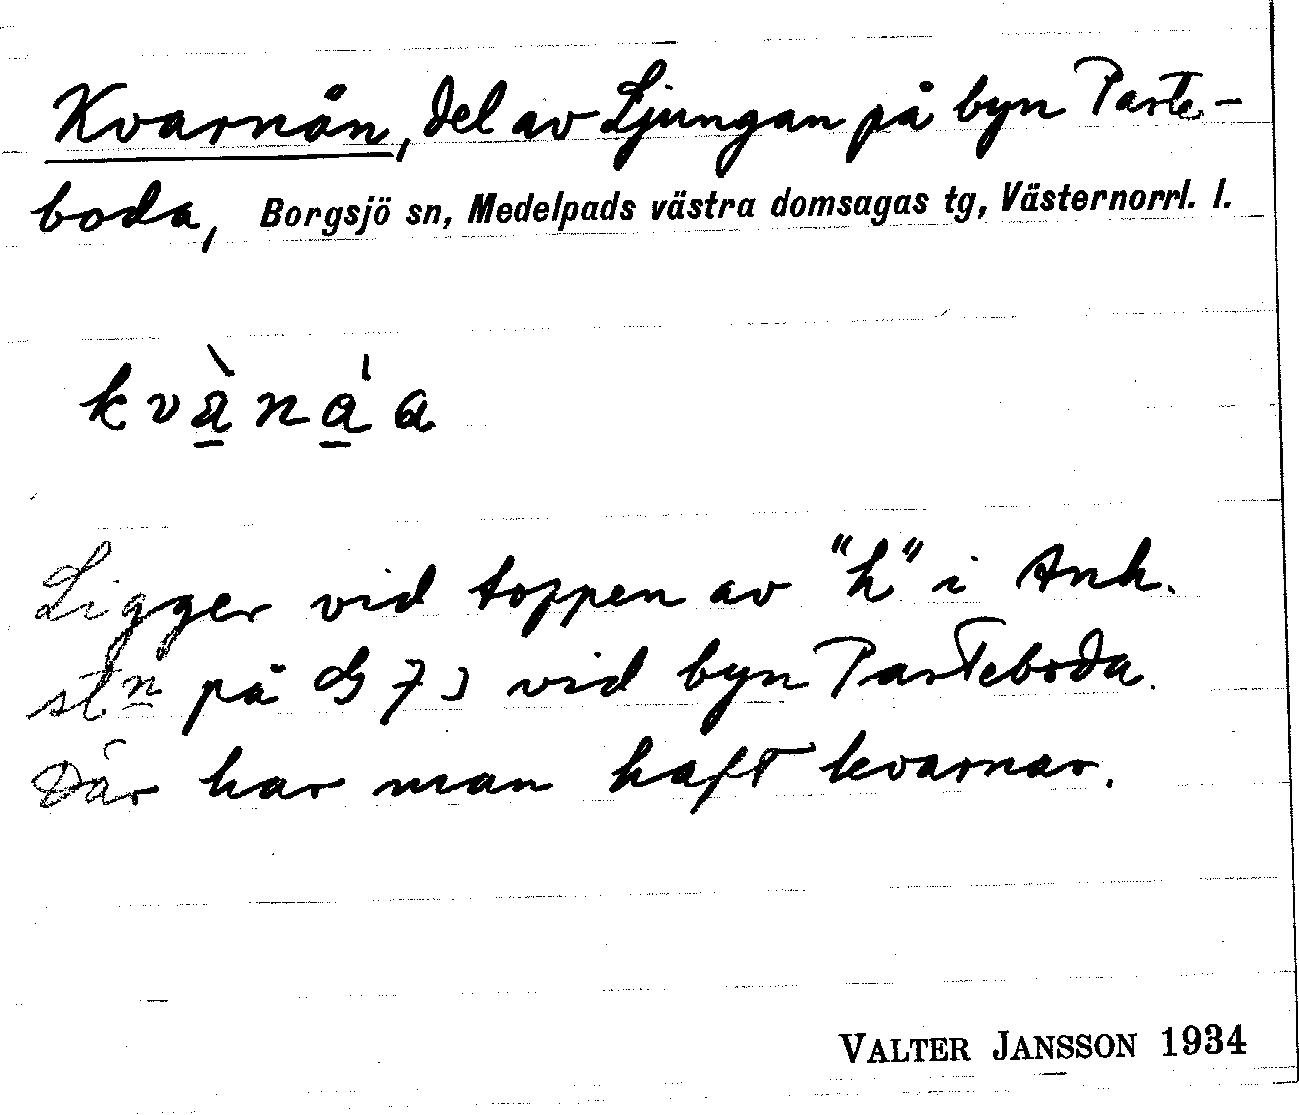 Kvarnån, del av Ljungan på byn Parte-
boda, Borgsjö sn, Medelpads västra domsagas tg, Västernorrl. l.
kvа̱̀na̱̍a
Ligger vid toppen av "h" i Anh.
stn på G 73 vid byn Parteboda.
Där har man haft kvarnar.
VALTER JANSSON 1934